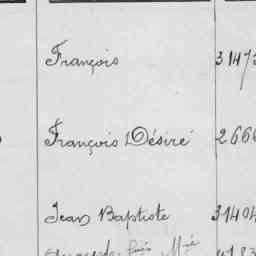 François 3147
François Désiré 2666
Jean Baptiste 31404